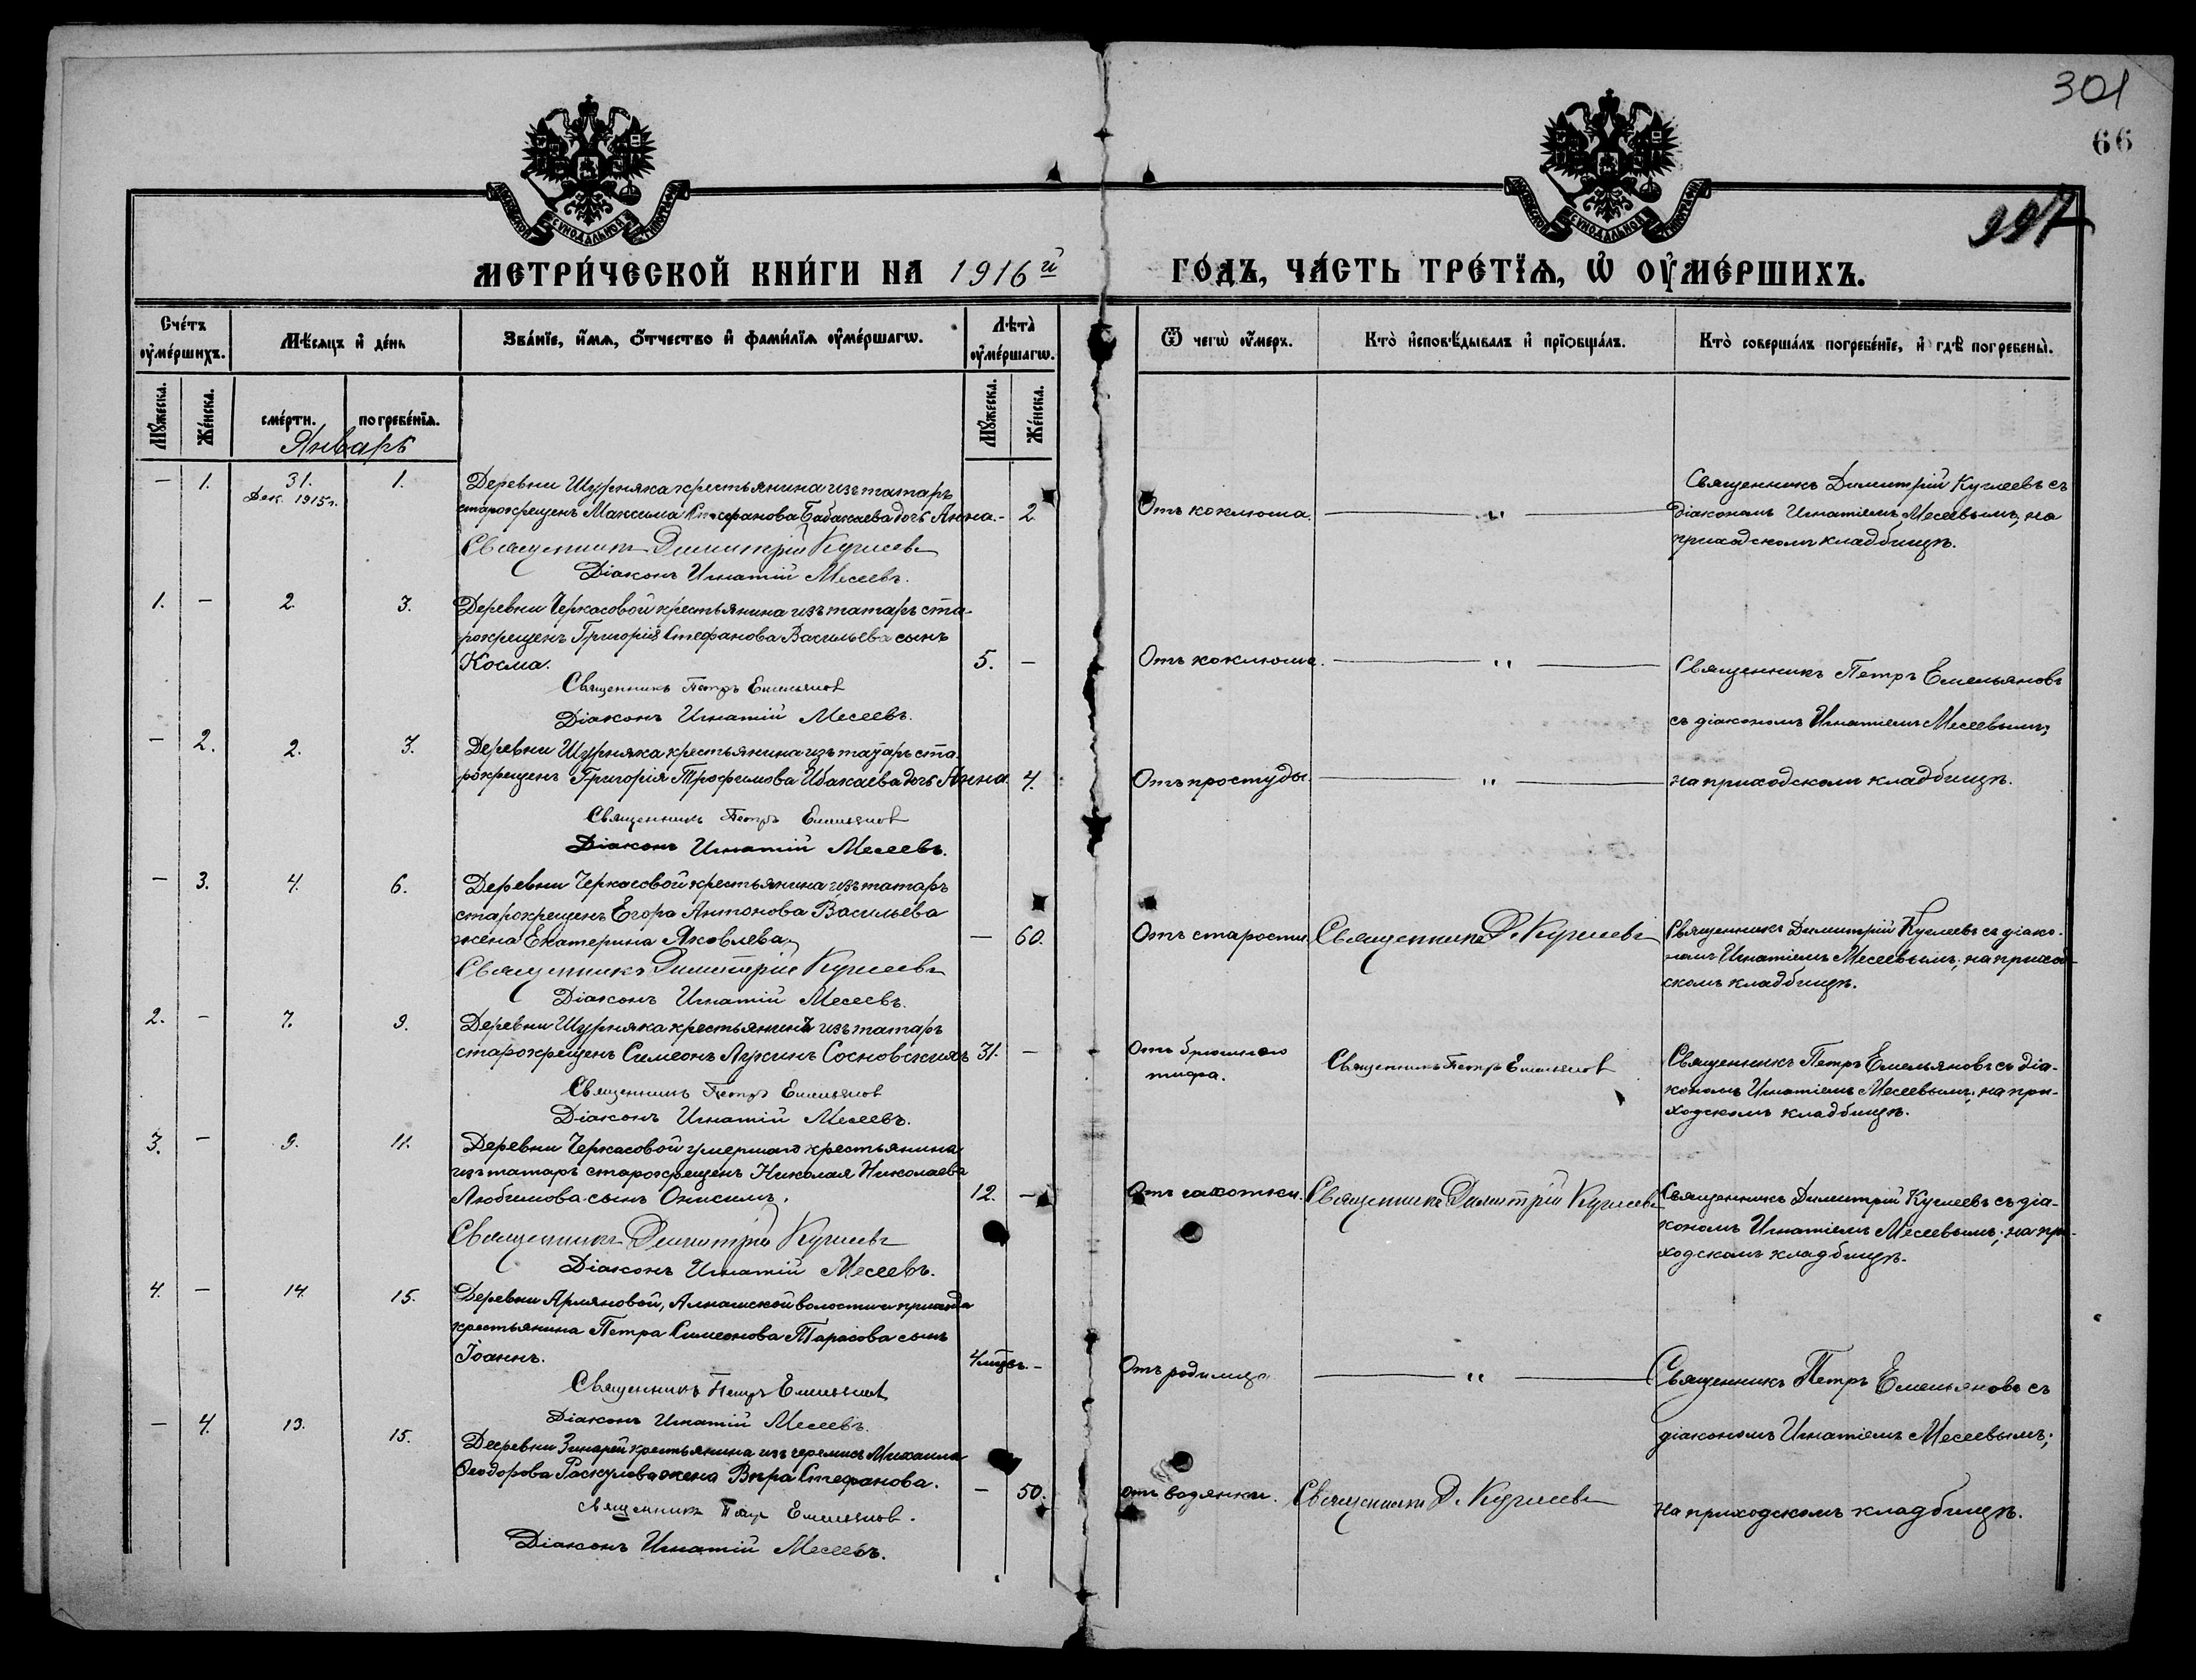 301
66
МЕТРИ́ЧЕСКОЙ КНИ́ГИ НА 1916 й ГО́ДЪ, ЧА́СТЬ ТРЕ́ТЇѦ, Ѡ҆ ОУ҆МЕ́РШИХЪ.
Сче́тъ оу҆ме́ршихъ.
Мѣ́сяцъ и҆ де́нь
Зва́нїе, и҆́мѧ, ѻ҆́тчество и҆ фами́лїѧ оу҆ме́ршагѡ.
Лѣ́та оу҆ме́ршагѡ.
Ѿ чегѡ̀ оу҆́меръ.
Кто̀ и҆сповѣ́дывалъ и҆ прїѻбща́лъ.
Кто̀ соверша́лъ погребе́нїе, и҆ гдѣ̀ погребены̀.
Мꙋ́жеска.
Же́нска.
сме́рти.
погребе́нїѧ.
Мꙋ́жеска.
Же́нска.
Январь
— 1. 31. Дек. 1915 г. 1.
Деревни Шурняка крестьянина изъ татаръ
старокрещенъ Максима Стефанова Бабакаева дочь Анна. - 2
Священникъ Димитрій Куглеевъ
Діаконъ Игнатій Месеевъ.
Отъ коклюша. — " —
Священникъ Димитрій Куглеевъ съ
діакономъ Игнатіемъ Месеевымъ; на
приходскомъ кладбищѣ.
1. — 2. 3.
Деревни Черкасовой крестьянина изъ татаръ ста-
рокрещенъ Григорія Стефанова Васильева сынъ
Косма. 5. —
Священникъ Петръ Емельяновъ
Діаконъ Игнатій Месеевъ.
Отъ коклюша. — " —
Священникъ Петръ Емельяновъ
съ діакономъ Игнатіемъ Месеевымъ;
— 2. 2. 3.
Деревни Шурняка крестьянина изъ татаръ ста-
рокрещенъ Григорія Трофимова Ибакаева дочь Анна 4.
Священникъ Петръ Емельяновъ
Діаконъ Игнатій Месеевъ.
Отъ простуды. — " —
на приходскомъ кладбищѣ.
— 3. 4. 6.
Деревни Черкасовой крестьянина изъ татаръ
старокрещенъ Егора Антонова Васильева
жена Екатерина Яковлева. — 60.
Священникъ Димитрій Куглеевъ
Діаконъ Игнатій Месеевъ.
Отъ старости. Священникъ Д. Куглеевъ
Священникъ Димитрій Куглеевъ съ діако-
номъ Игнатіемъ Месеевымъ; на приход-
скомъ кладбищѣ.
2. — 7. 9.
Деревни Шурняка крестьянинъ изъ татаръ
старокрещенъ Симеонъ Лукинъ Сосновскихъ 31. —
Священникъ Петръ Емельяновъ
Діаконъ Игнатій Месеевъ.
Отъ брюшного
тифа.
Священникъ Петръ Емельяновъ
Священникъ Петръ Емельяновъ съ діа-
кономъ Игнатіемъ Месеевымъ; на при-
ходскомъ кладбищѣ.
3. — 9. 11.
Деревни Черкасовой умершаго крестьянина
изъ татаръ старокрещенъ Николая Николаева
Любимова сынъ Онисимъ. 12. —
Священникъ Димитрій Куглеевъ
Діаконъ Игнатій Месеевъ.
Отъ чахотки. Священникъ Димитрій Куглеевъ
Священникъ Димитрій Куглеевъ съ діа-
кономъ Игнатіемъ Месеевымъ; на при-
ходскомъ кладбищѣ.
4. — 14. 15.
Деревни Армяновой, Алнашской волости и прихода
крестьянина Петра Симеонова Тарасова сынъ
Іоаннъ. 4 мѣс. —
Священникъ Петръ Емельяновъ
Діаконъ Игнатій Месеевъ.
Отъ родимца. — " —
Священникъ Петръ Емельяновъ съ
діакономъ Игнатіемъ Месеевымъ;
— 4. 13. 15.
Деревни крестьянина изъ черемисъ Михаила
Ѳеодорова жена Вѣра Стефанова. — 50.
Священникъ Петръ Емельяновъ.
Діаконъ Игнатій Месеевъ.
Отъ водянки. Священникъ Д. Куглеевъ
на приходскомъ кладбищѣ.